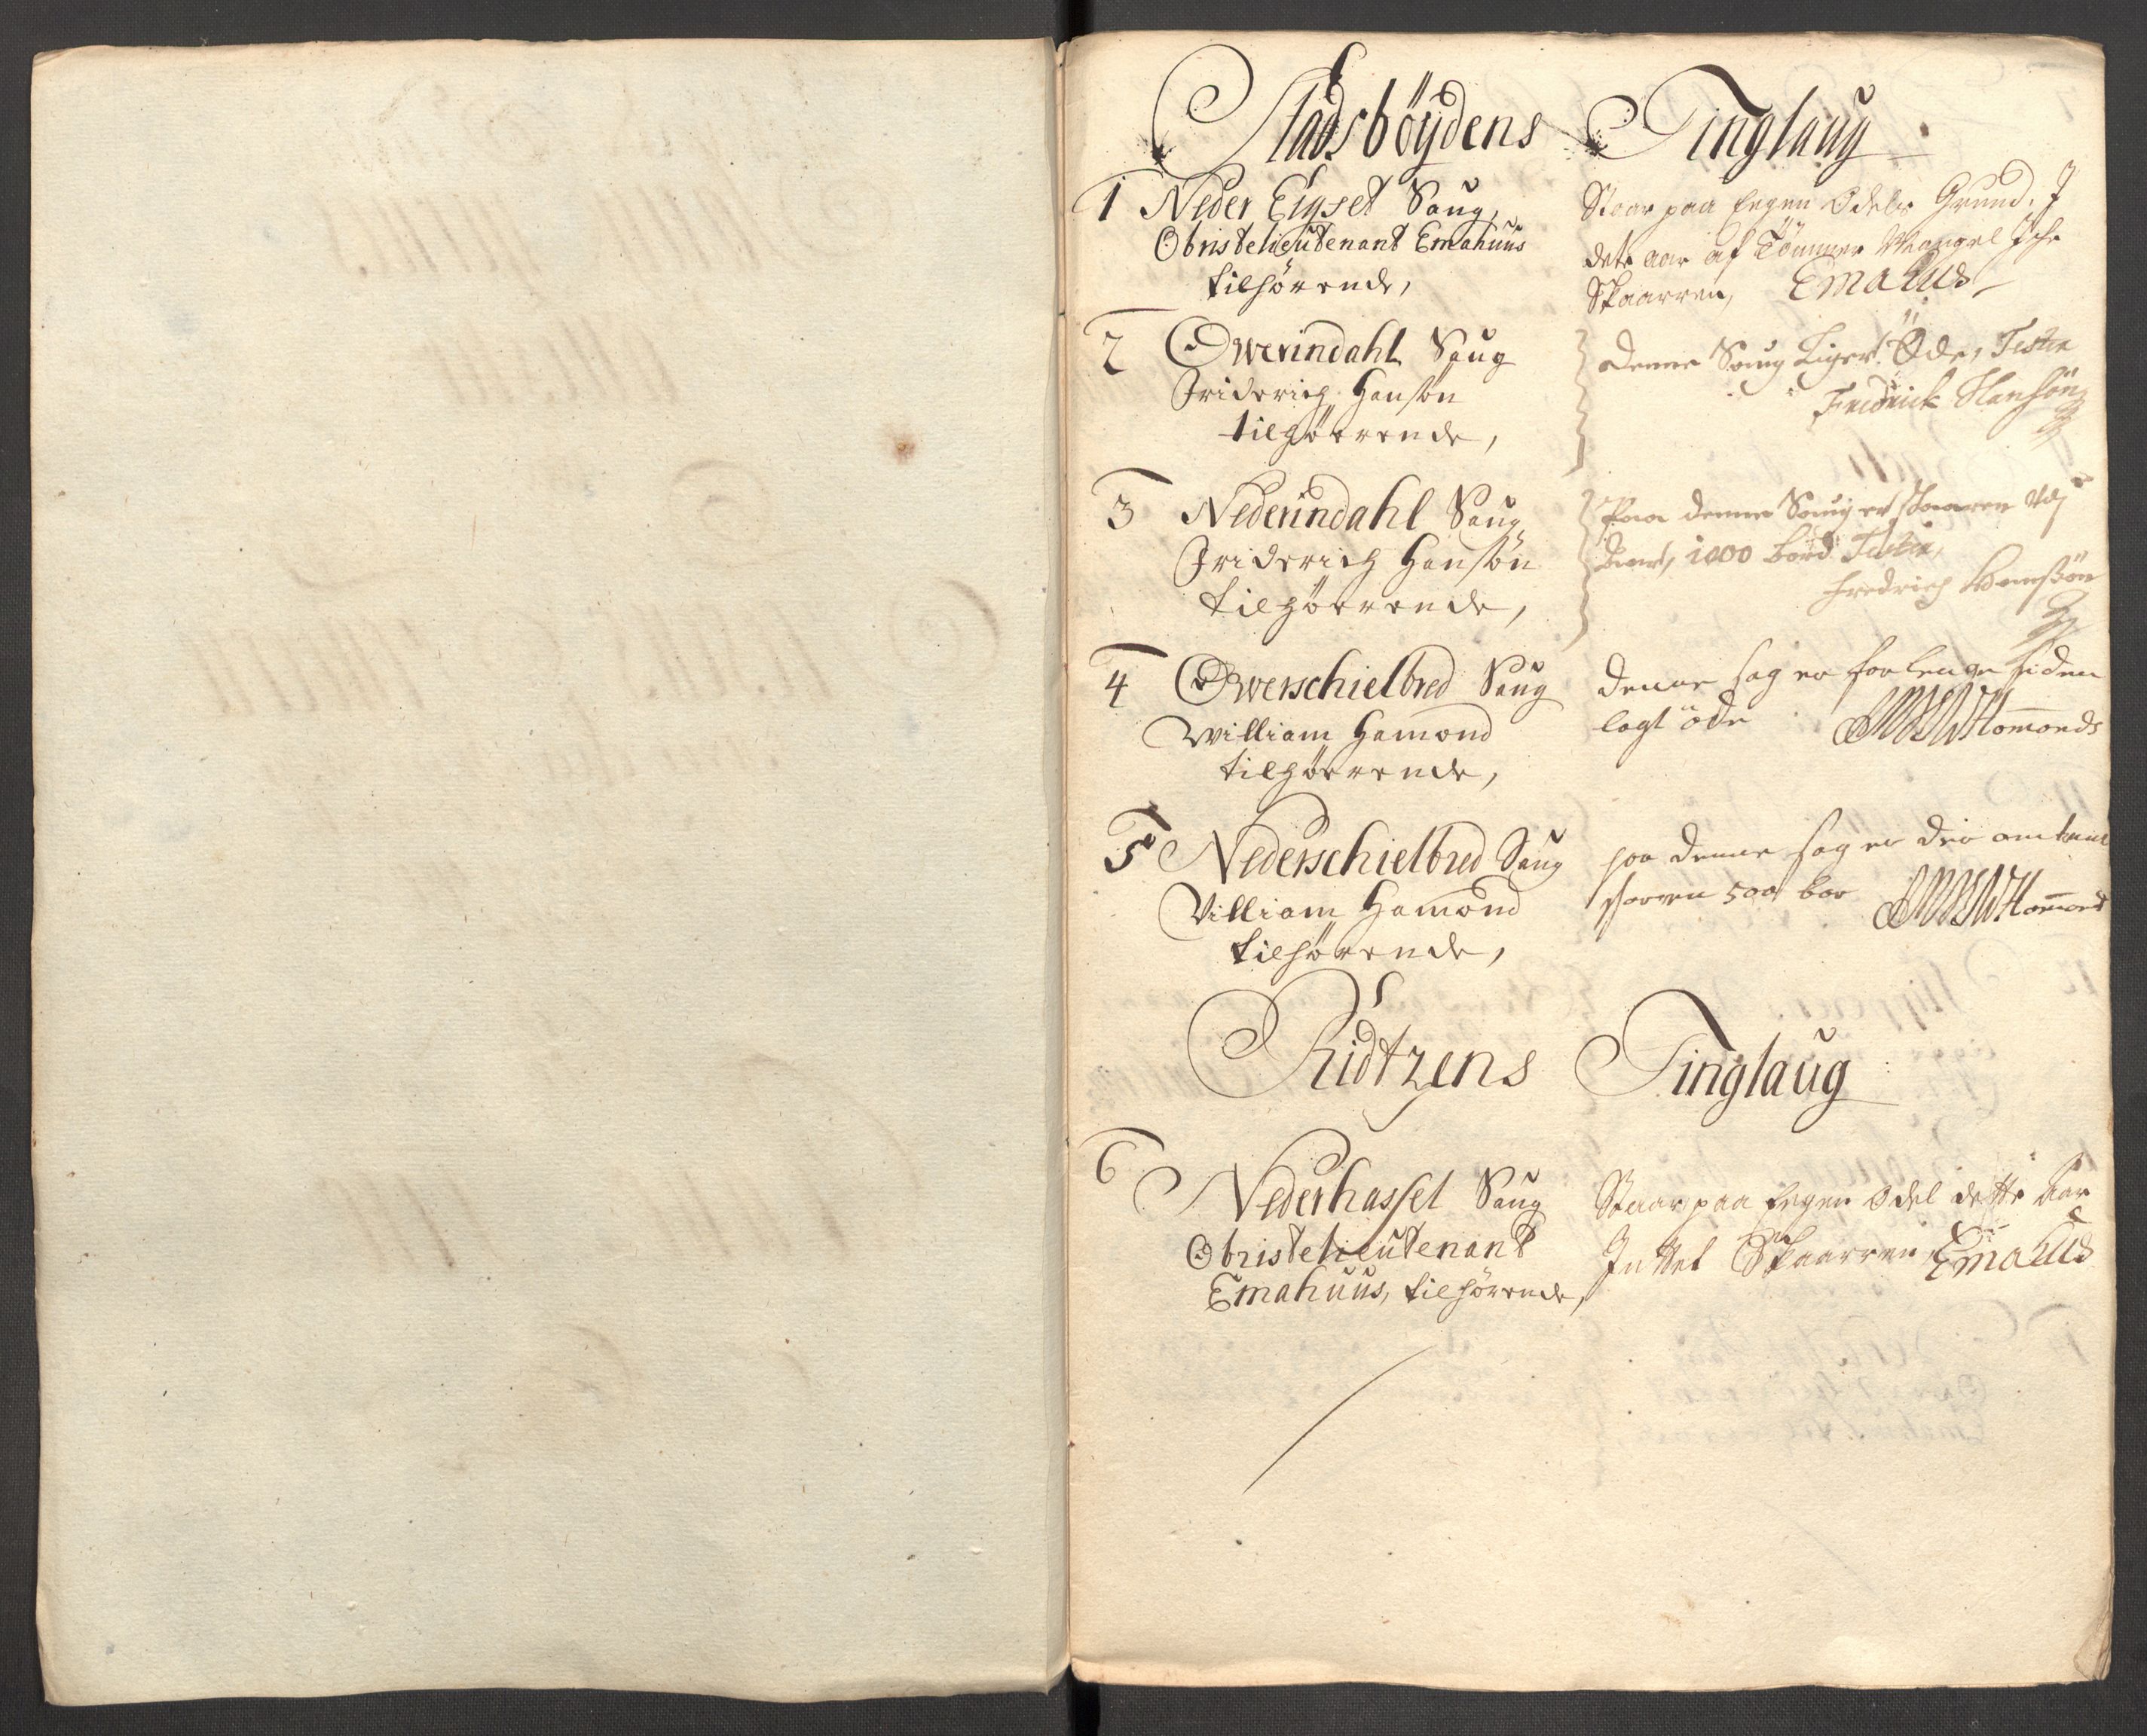 Stadsböydens Tinglaug
1 Neder Eigset Saug,
Obristelieutenant Emahuus
tilhørende,
Staar paa Eegen Odels Grund, J
dete aar af Tömmer Mangel Iche
Skaarren, Emahus
2 Owerindahl Saug
Friderich Hansön
tilhöerende,
Denne Saug Liger Öde, Testor
Fredrick Hansön
3 Nederindahl Saug
Friderich Hansön
tilhöerende,
Paa denne Saug er skaaren
1000 bord Testor,
Fredrich Hanssön
4 Owerschielbred Saug
William Hamond
tilhöerende,
Denne sag er for lenge siden
lagt öde Hamonds
5 Nederschielbred Saug
Villiam Hamond
tilhörende,
paa denne sag er
skorren 500 bor Hamond
Ridtzens Tinglaug
6 Nederhassel Saug
Obristelieutenant
Emahuus, tilhörende,
Staar paa Eegen Odel dette Aar
Inttet Skaarren, Emahus